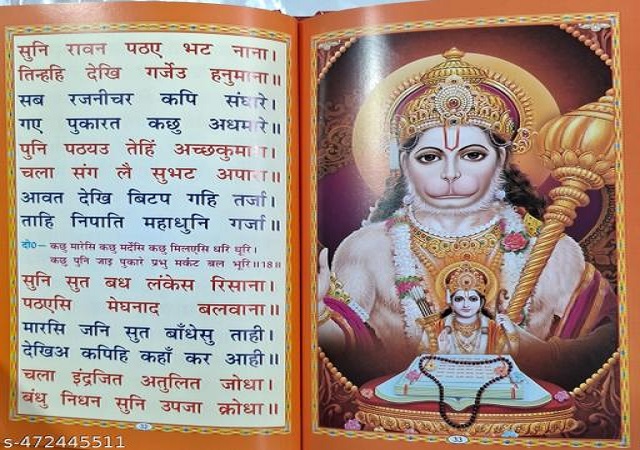 सुनि रावन पठए भट नाना।
तिन्हहि देखि गर्जेउ हनुमाना॥
सब रजनीचर कपि संघारे।
गए पुकारत कछु अधमारे॥
पुनि पठयउ तेहिं अच्छकुमारा।
चला संग लै सुभट अपारा॥
आवत देखि बिटप गहि तर्जा।
ताहि निपाति महाधुनि गर्जा॥
दो०– कछु मारेसि कछु मर्देसि कछु मिलएसि धरि धूरि।
कछु पुनि जाइ पुकारे प्रभु मर्कट बल भूरि॥18॥
सुनि सुत बध लंकेस रिसाना।
पठएसि मेघनाद बलवाना॥
मारसि जनि सुत बाँधेसु ताही।
देखिअ कपिहि कहाँ कर आही॥
चला इंद्रजित अतुलित जोधा।
बंधु निधन सुनि उपजा क्रोधा॥
32
33
s-472445511